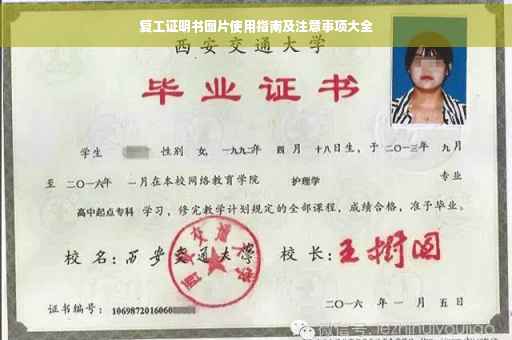 复工证明书图片使用指南及注意事项大全
西安交通大学
毕业证书
学生 性别 女, 一九九二年 四 月 十八日生, 于 二〇一三年 九月
至 二〇一六年 一月在本校网络教育学院 护理学 专业
高中起点专科 学习, 修完教学计划规定的全部课程, 成绩合格, 准予毕业。
校 名: 西安交通大学 校 长: 王树国
西安交通大学
二〇一六 年 一 月 五 日
证书编号: 1069872016060
微信号: jezhihuiyoujiao